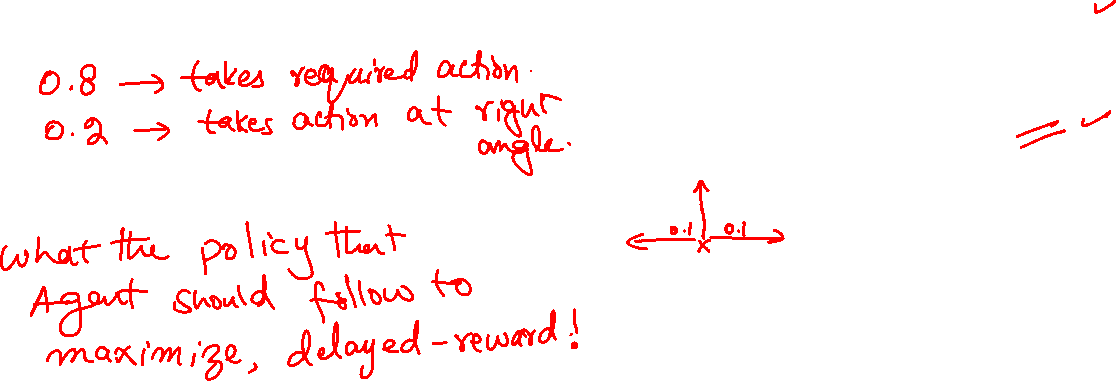 0.8 → takes required action.
0.2 → takes action at right
angle.
0.1 0.1
what the policy that
Agent should follow to
maximize, delayed-reward!